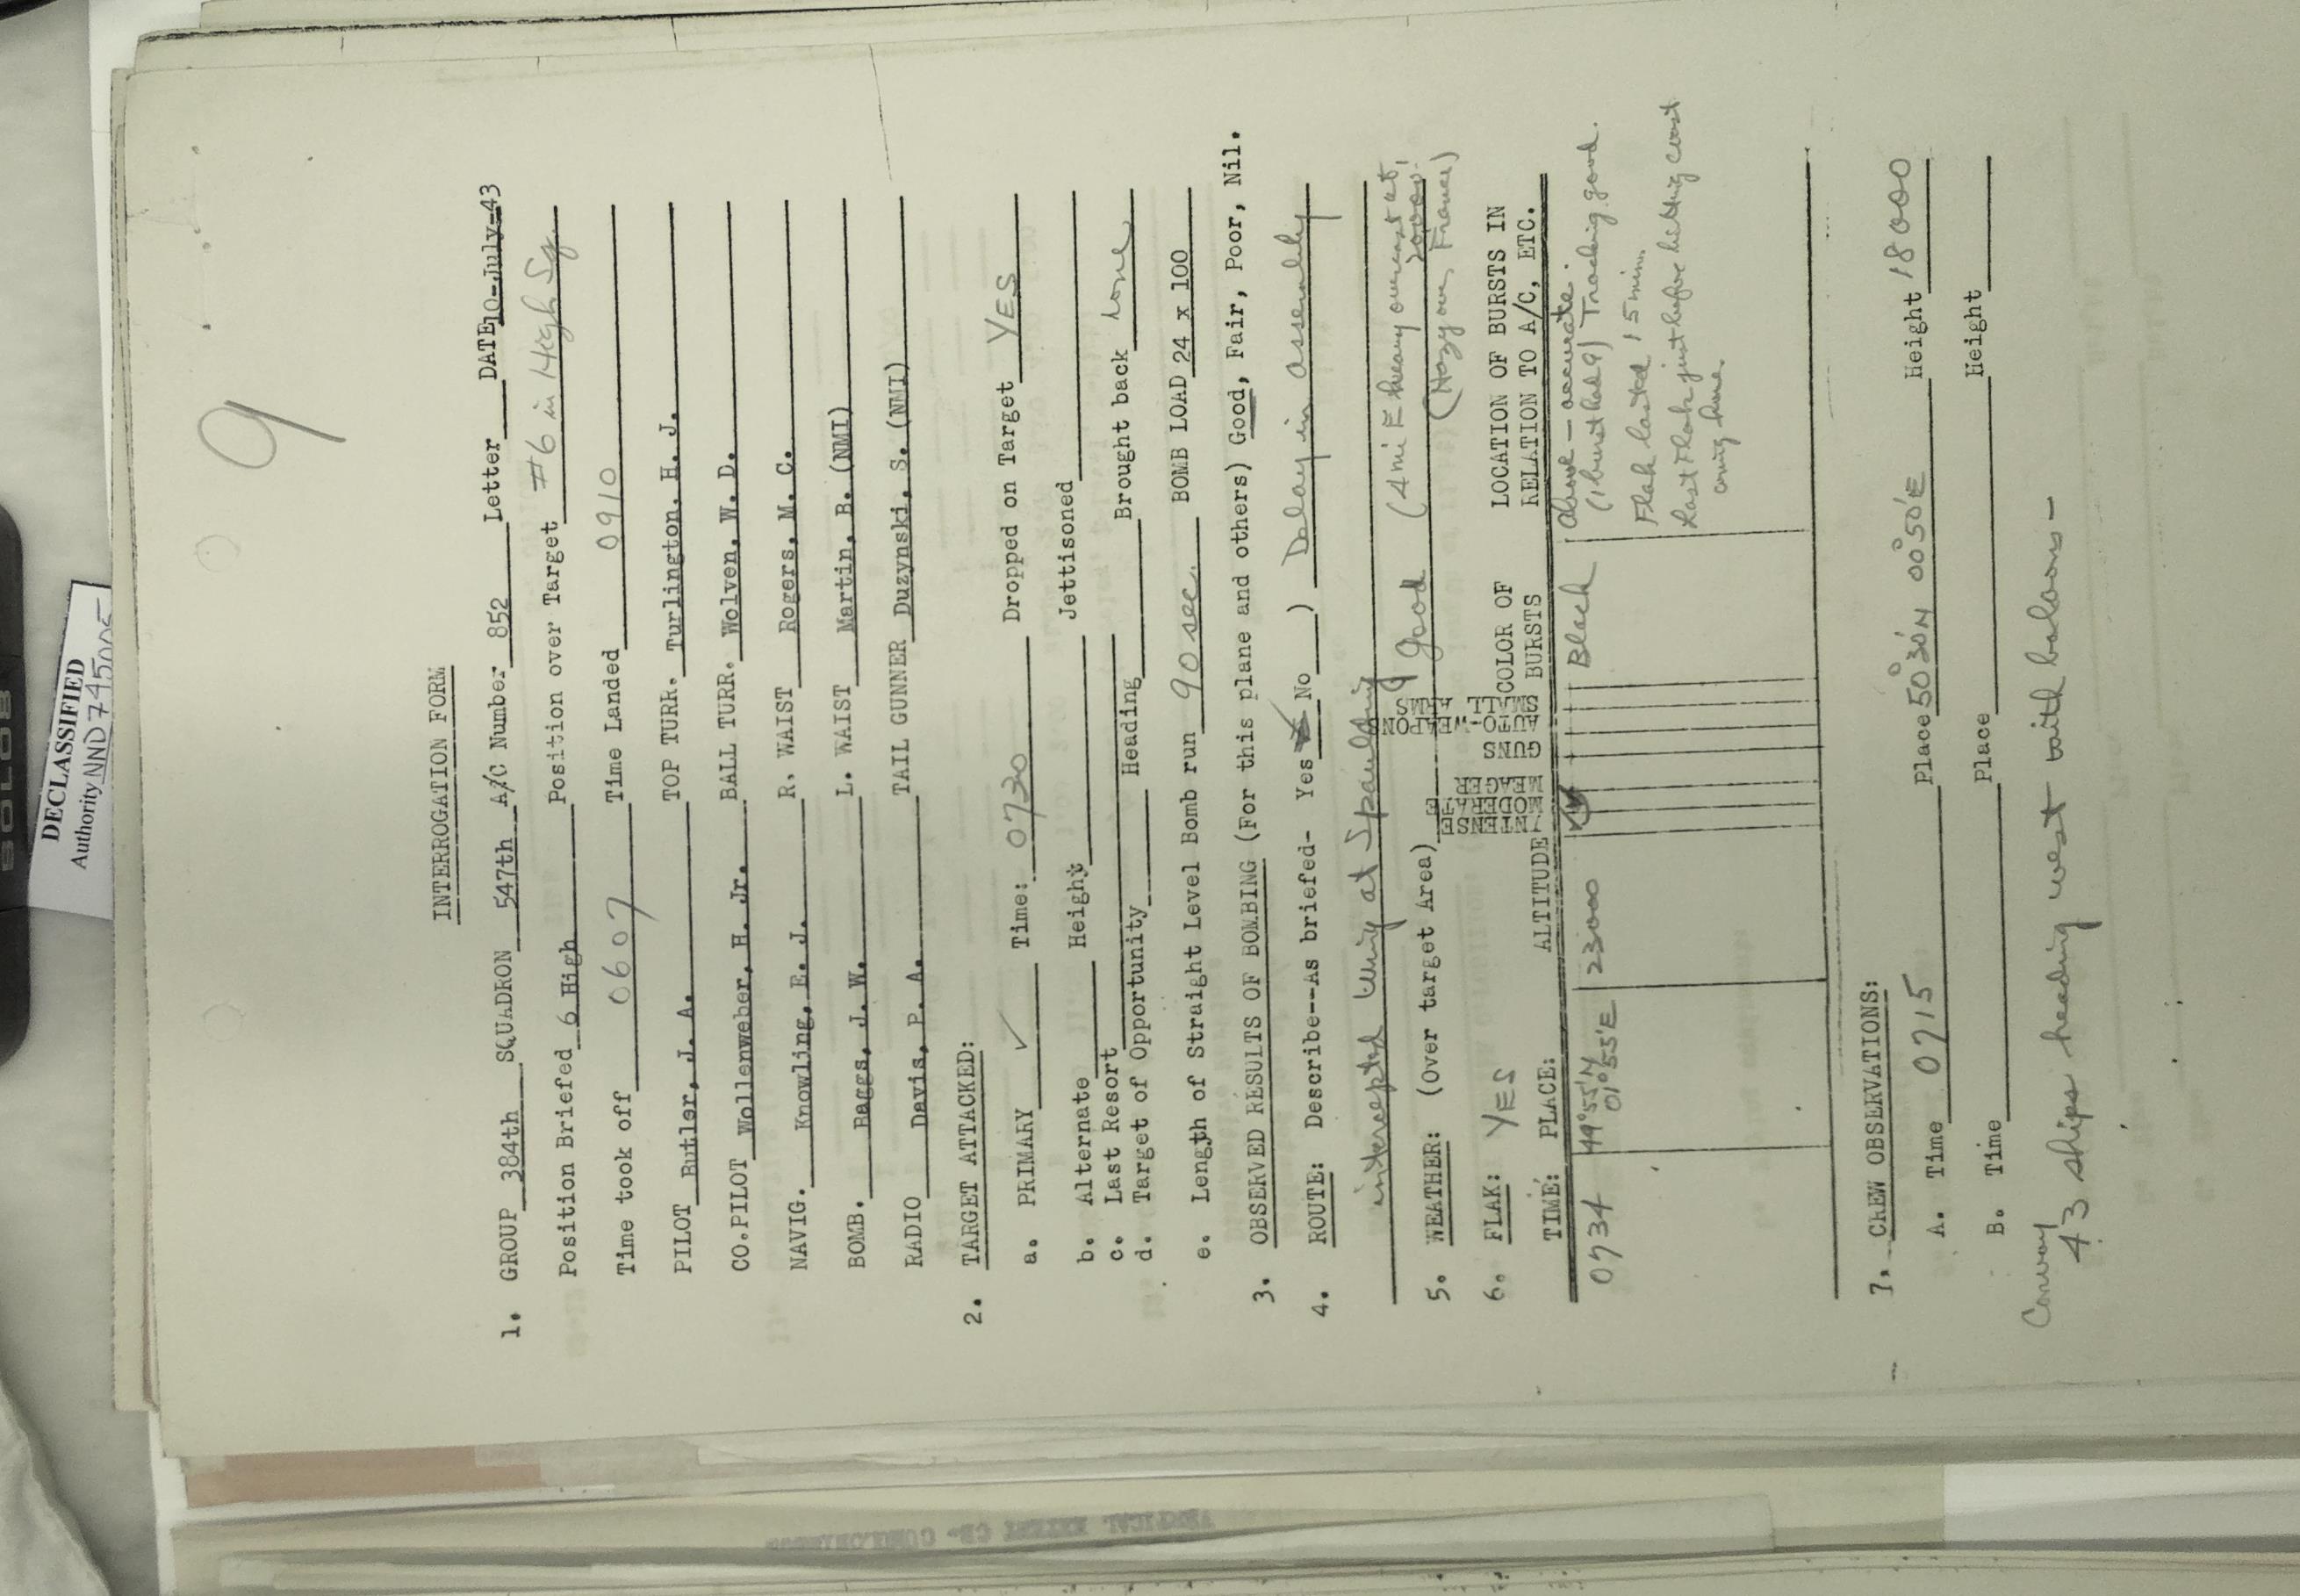 DECLASSIFIED
Authority NND 745005
9
INTERROGATION FORM
1. GROUP 384th SQUADRON 547th A/C Number 852 Letter DATE 10-July-43
Position Briefed 6 High Position over Target #6 in High Sq.
Time took off 0607 Time Landed 0910
PILOT Butler, J. A. TOP TURR. Turlington, H. J.
CO.PILOT Wollenweber, H. Jr. BALL TURR. Wolven, W. D.
NAVIG. Knowling, E. J. R. WAIST Rogers, M. C.
BOMB. Baggs, J. W. L. WAIST Martin, B. (NMI)
RADIO Davis, P. A. TAIL GUNNER Duzynski, S. (NMI)
2. TARGET ATTACKED:
a. PRIMARY ✓ Time: 0730 Dropped on Target YES
b. Alternate Height Jettisoned
c. Last Resort
d. Target of Opportunity Heading Brought back none
e. Length of Straight Level Bomb run 90 sec. BOMB LOAD 24 x 100
3. OBSERVED RESULTS OF BOMBING (For this plane and others) Good, Fair, Poor, Nil.
4. ROUTE: Describe--As briefed- Yes No ) Delay in assembly
intercepted wing at Spaulding
5. WEATHER: (Over target Area) good (4 mi E heavy overcast at 20000'.
(Hazy over France)
6. FLAK: YES
TIME: PLACE: ALTITUDE INTENSE MODERATE MEAGER GUNS AUTO-WEAPONS SMALL ARMS COLOR OF BURSTS LOCATION OF BURSTS IN RELATION TO A/C, ETC.
0734 49°55'N 01°55'E 23000 ✓ Black above - accurate.
(1 burst had 9) Tracking good.
Flak lasted 15 min.
Last Flak just before hitting coast
coming home.
7. CREW OBSERVATIONS:
A. Time 0715 Place 50°30'N 00°50'E Height 18000
B. Time Place Height
Convoy
43 ships heading west with baloons -
VERTICAL EXTENT OF